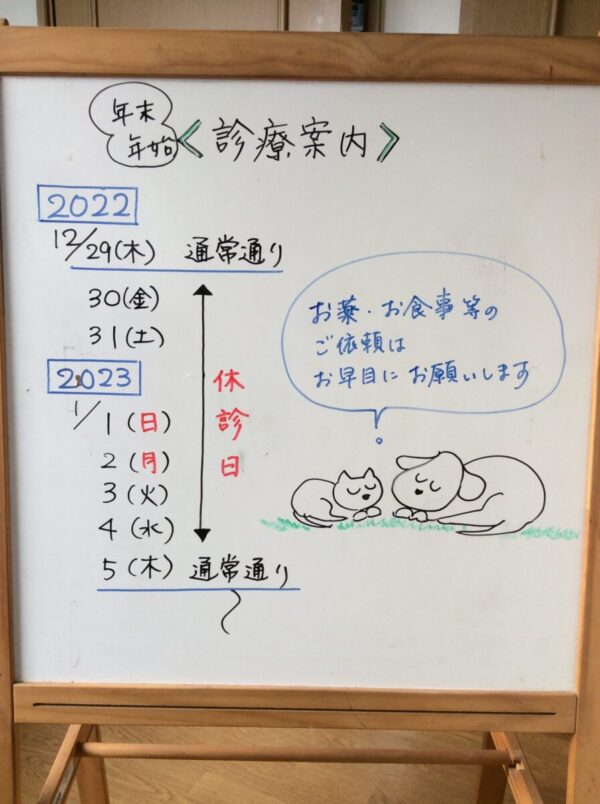 年末
年始
<診療案内>
2022
12/29(木) 通常通り
30(金)
31(土)
2023
1/1(日)
2(月)
3(火)
4(水)
5(木) 通常通り
休診日
お薬・お食事等の
ご依頼は
お早目にお願いします